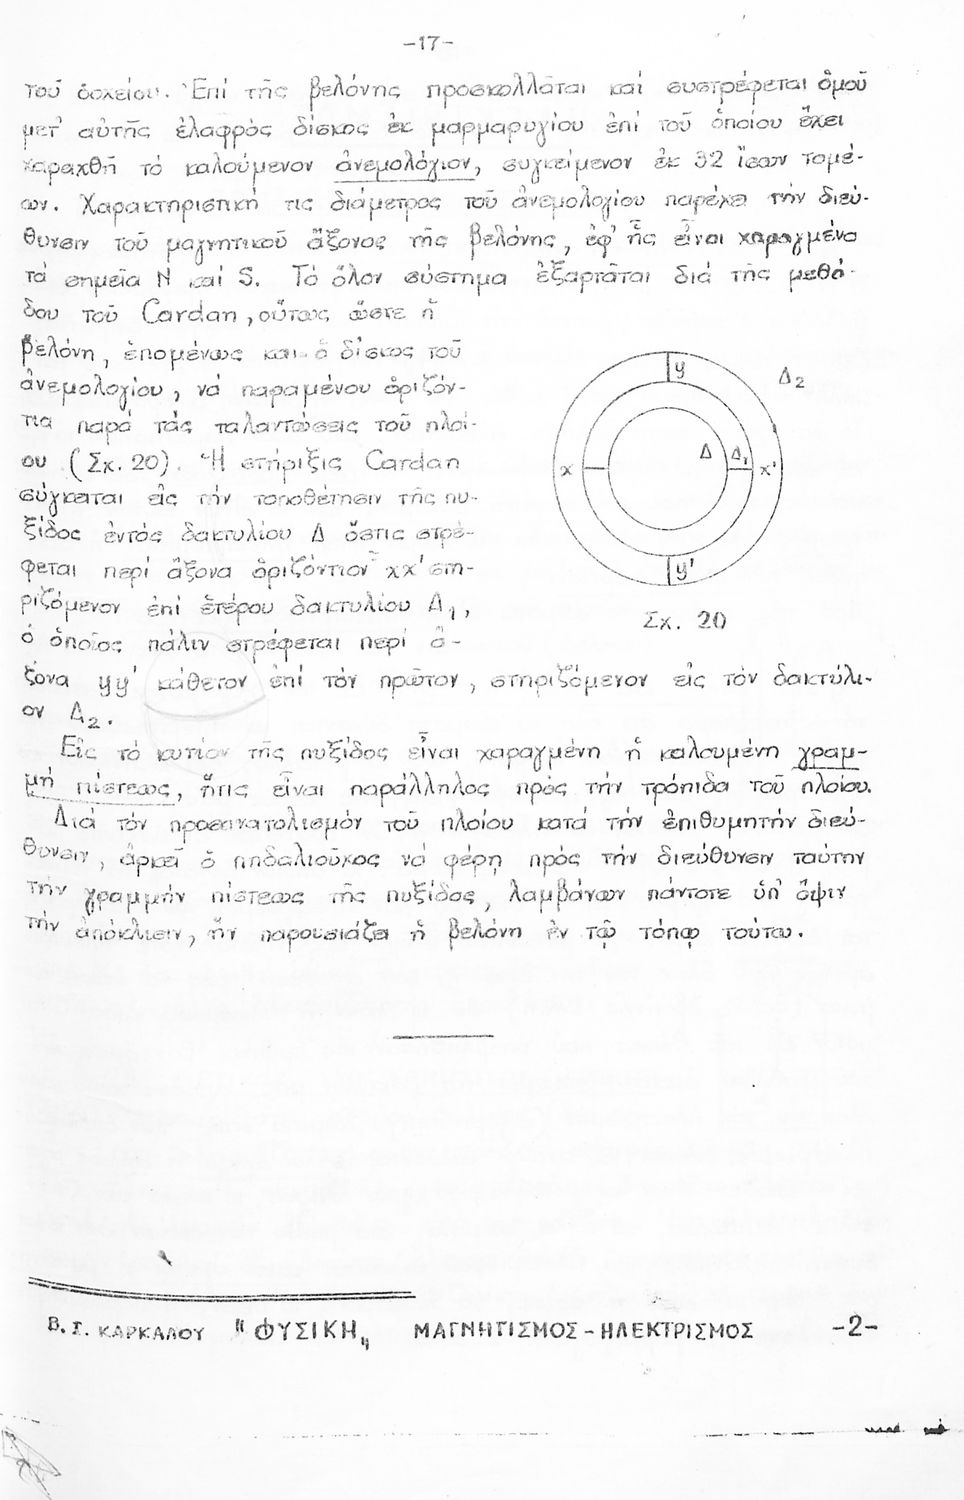 -17-
τοῦ δοχείου. Ἐπί τῆς βελόνης προσκολλᾶται καί συστρέφεται ὁμοῦ
μετ' αὐτῆς ἐλαφρός δίσκος ἐκ μαρμαρυγίου ἐπί τοῦ ὁποίου ἔχει
χαραχθῆ τό καλούμενον ἀνεμολόγιον, συγκείμενον ἐκ 32 ἴσων τομέ-
ων. Χαρακτηριστική τις διάμετρος τοῦ ἀνεμολογίου παρέχει τήν διεύ-
θυνσιν τοῦ μαγνητικοῦ ἄξονος τῆς βελόνης, ἐφ' ἧς εἶναι χαραγμένα
τά σημεῖα N καί S. Τό ὅλον σύστημα ἐξαρτᾶται διά τῆς μεθό-
δου τοῦ Cardan, οὕτως ὥστε ἡ
βελόνη, ἑπομένως καί ὁ δίσκος τοῦ
ἀνεμολογίου, νά παραμένου ὁριζόν-
τια παρά τάς ταλαντώσεις τοῦ πλοί-
ου (Σχ. 20). Ἡ στήριξις Cardan
σύγκειται εἰς τήν τοποθέτησιν τῆς πυ-
ξίδος ἐντός δακτυλίου Δ ὅστις στρέ-
φεται περί ἄξονα ὁριζόντιον xx' στη-
ριζόμενον ἐπί ἑτέρου δακτυλίου Δ₁,
ὁ ὁποῖος πάλιν στρέφεται περί ἄ-
ξονα yy' κάθετον ἐπί τόν πρῶτον, στηριζόμενον εἰς τόν δακτύλι-
ον Δ₂.
y
Δ₂
x
Δ
Δ₁
x'
y'
Σχ. 20
Εἰς τό κυτίον τῆς πυξίδος εἶναι χαραγμένη ἡ καλουμένη γραμ-
μή πίστεως, ἥτις εἶναι παράλληλος πρός τήν τρόπιδα τοῦ πλοίου.
Διά τόν προσανατολισμόν τοῦ πλοίου κατά τήν ἐπιθυμητήν διεύ-
θυνσιν, ἀρκεῖ ὁ πηδαλιοῦχος νά φέρῃ πρός τήν διεύθυνσιν ταύτην
τήν γραμμήν πίστεως τῆς πυξίδος, λαμβάνων πάντοτε ὑπ' ὄψιν
τήν ἀπόκλισιν, ἥν παρουσιάζει ἡ βελόνη ἐν τῷ τόπῳ τούτῳ.
Β. Γ. ΚΑΡΚΑΛΟΥ "ΦΥΣΙΚΗ" ΜΑΓΝΗΤΙΣΜΟΣ-ΗΛΕΚΤΡΙΣΜΟΣ -2-